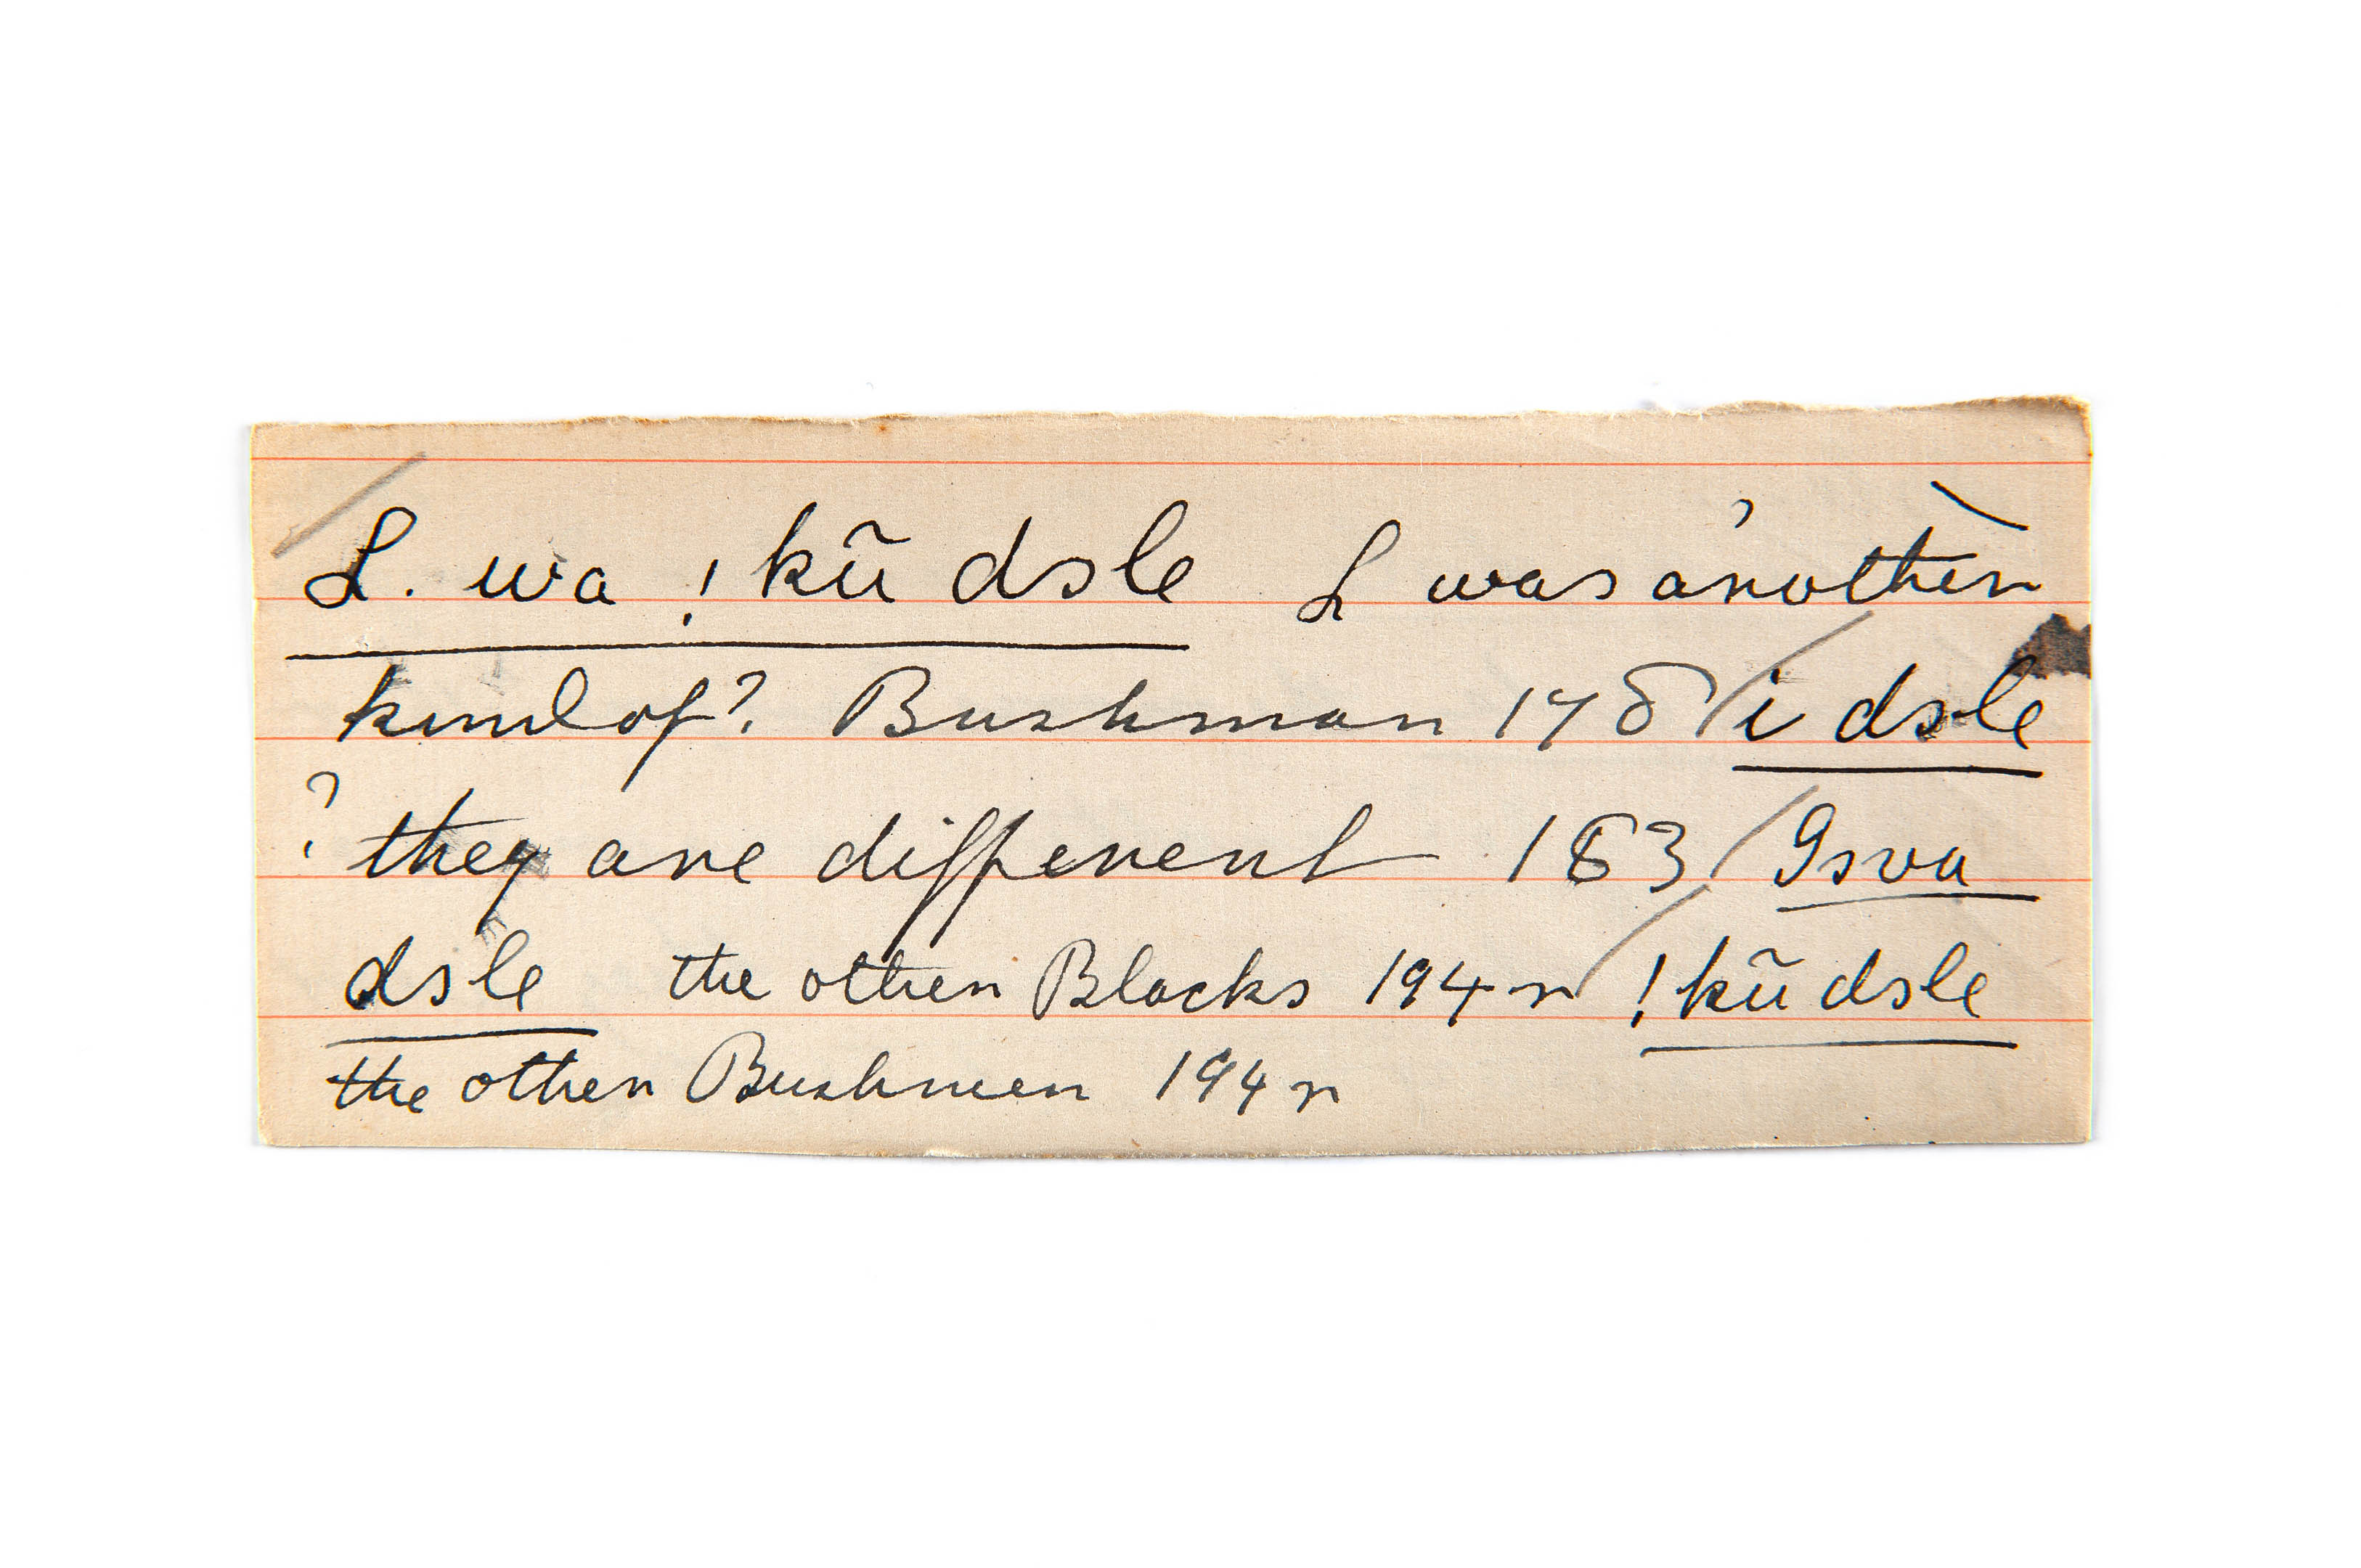 L. wa !kũ dsle L was ?another
kind of? Bushman 178 / i dsle
? they are different 183 / Gova
dsle the other Blacks 194 r / !kũ dsle
the other Bushmen 194 r